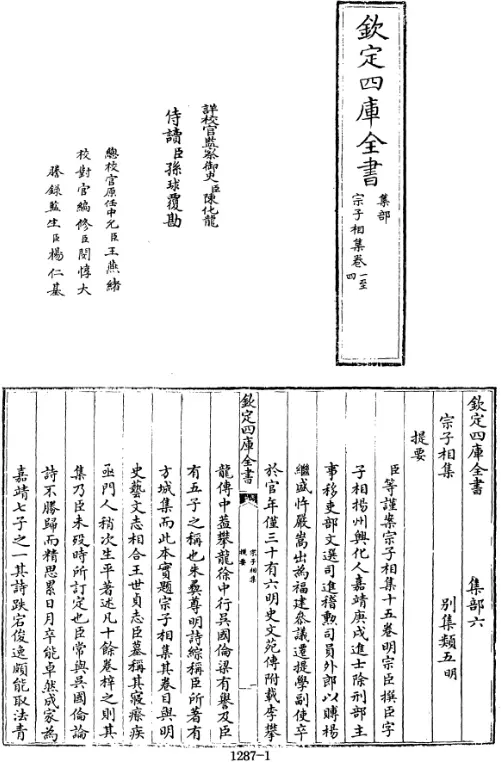 欽定四庫全書
集部
宗子相集卷一至四
詳校官監察御史臣陳化龍
侍讀臣孫球覆勘
總校官原任中允臣王燕緒
校對官編修臣閔惇大
謄錄監生臣楊仁基
欽定四庫全書
集部六
宗子相集
別集類五明
提要
臣等謹案宗子相集十五卷明宗臣撰臣字
子相揚州興化人嘉靖庚戌進士除刑部主
事移吏部文選司進稽勲司員外郎以賻楊
繼盛忤嚴嵩出為福建叅議遷提學副使卒
於官年僅三十有六明史文苑傳附載李攀
欽定四庫全書
宗子相集
提要
一
龍傳中葢攀龍徐中行吳國倫梁有譽及臣
有五子之稱也朱彝尊明詩綜稱臣所著有
方城集而此本實題宗子相集其卷目與明
史藝文志相合王世貞志臣墓稱其寢瘵疾
亟門人稍次生平著述凡十餘卷梓之則其
集乃臣未歿時所訂定也臣常與吳國倫論
詩不勝歸而精思累日月卒能卓然成家為
嘉靖七子之一其詩跌宕俊逸頗能取法青
1287-1